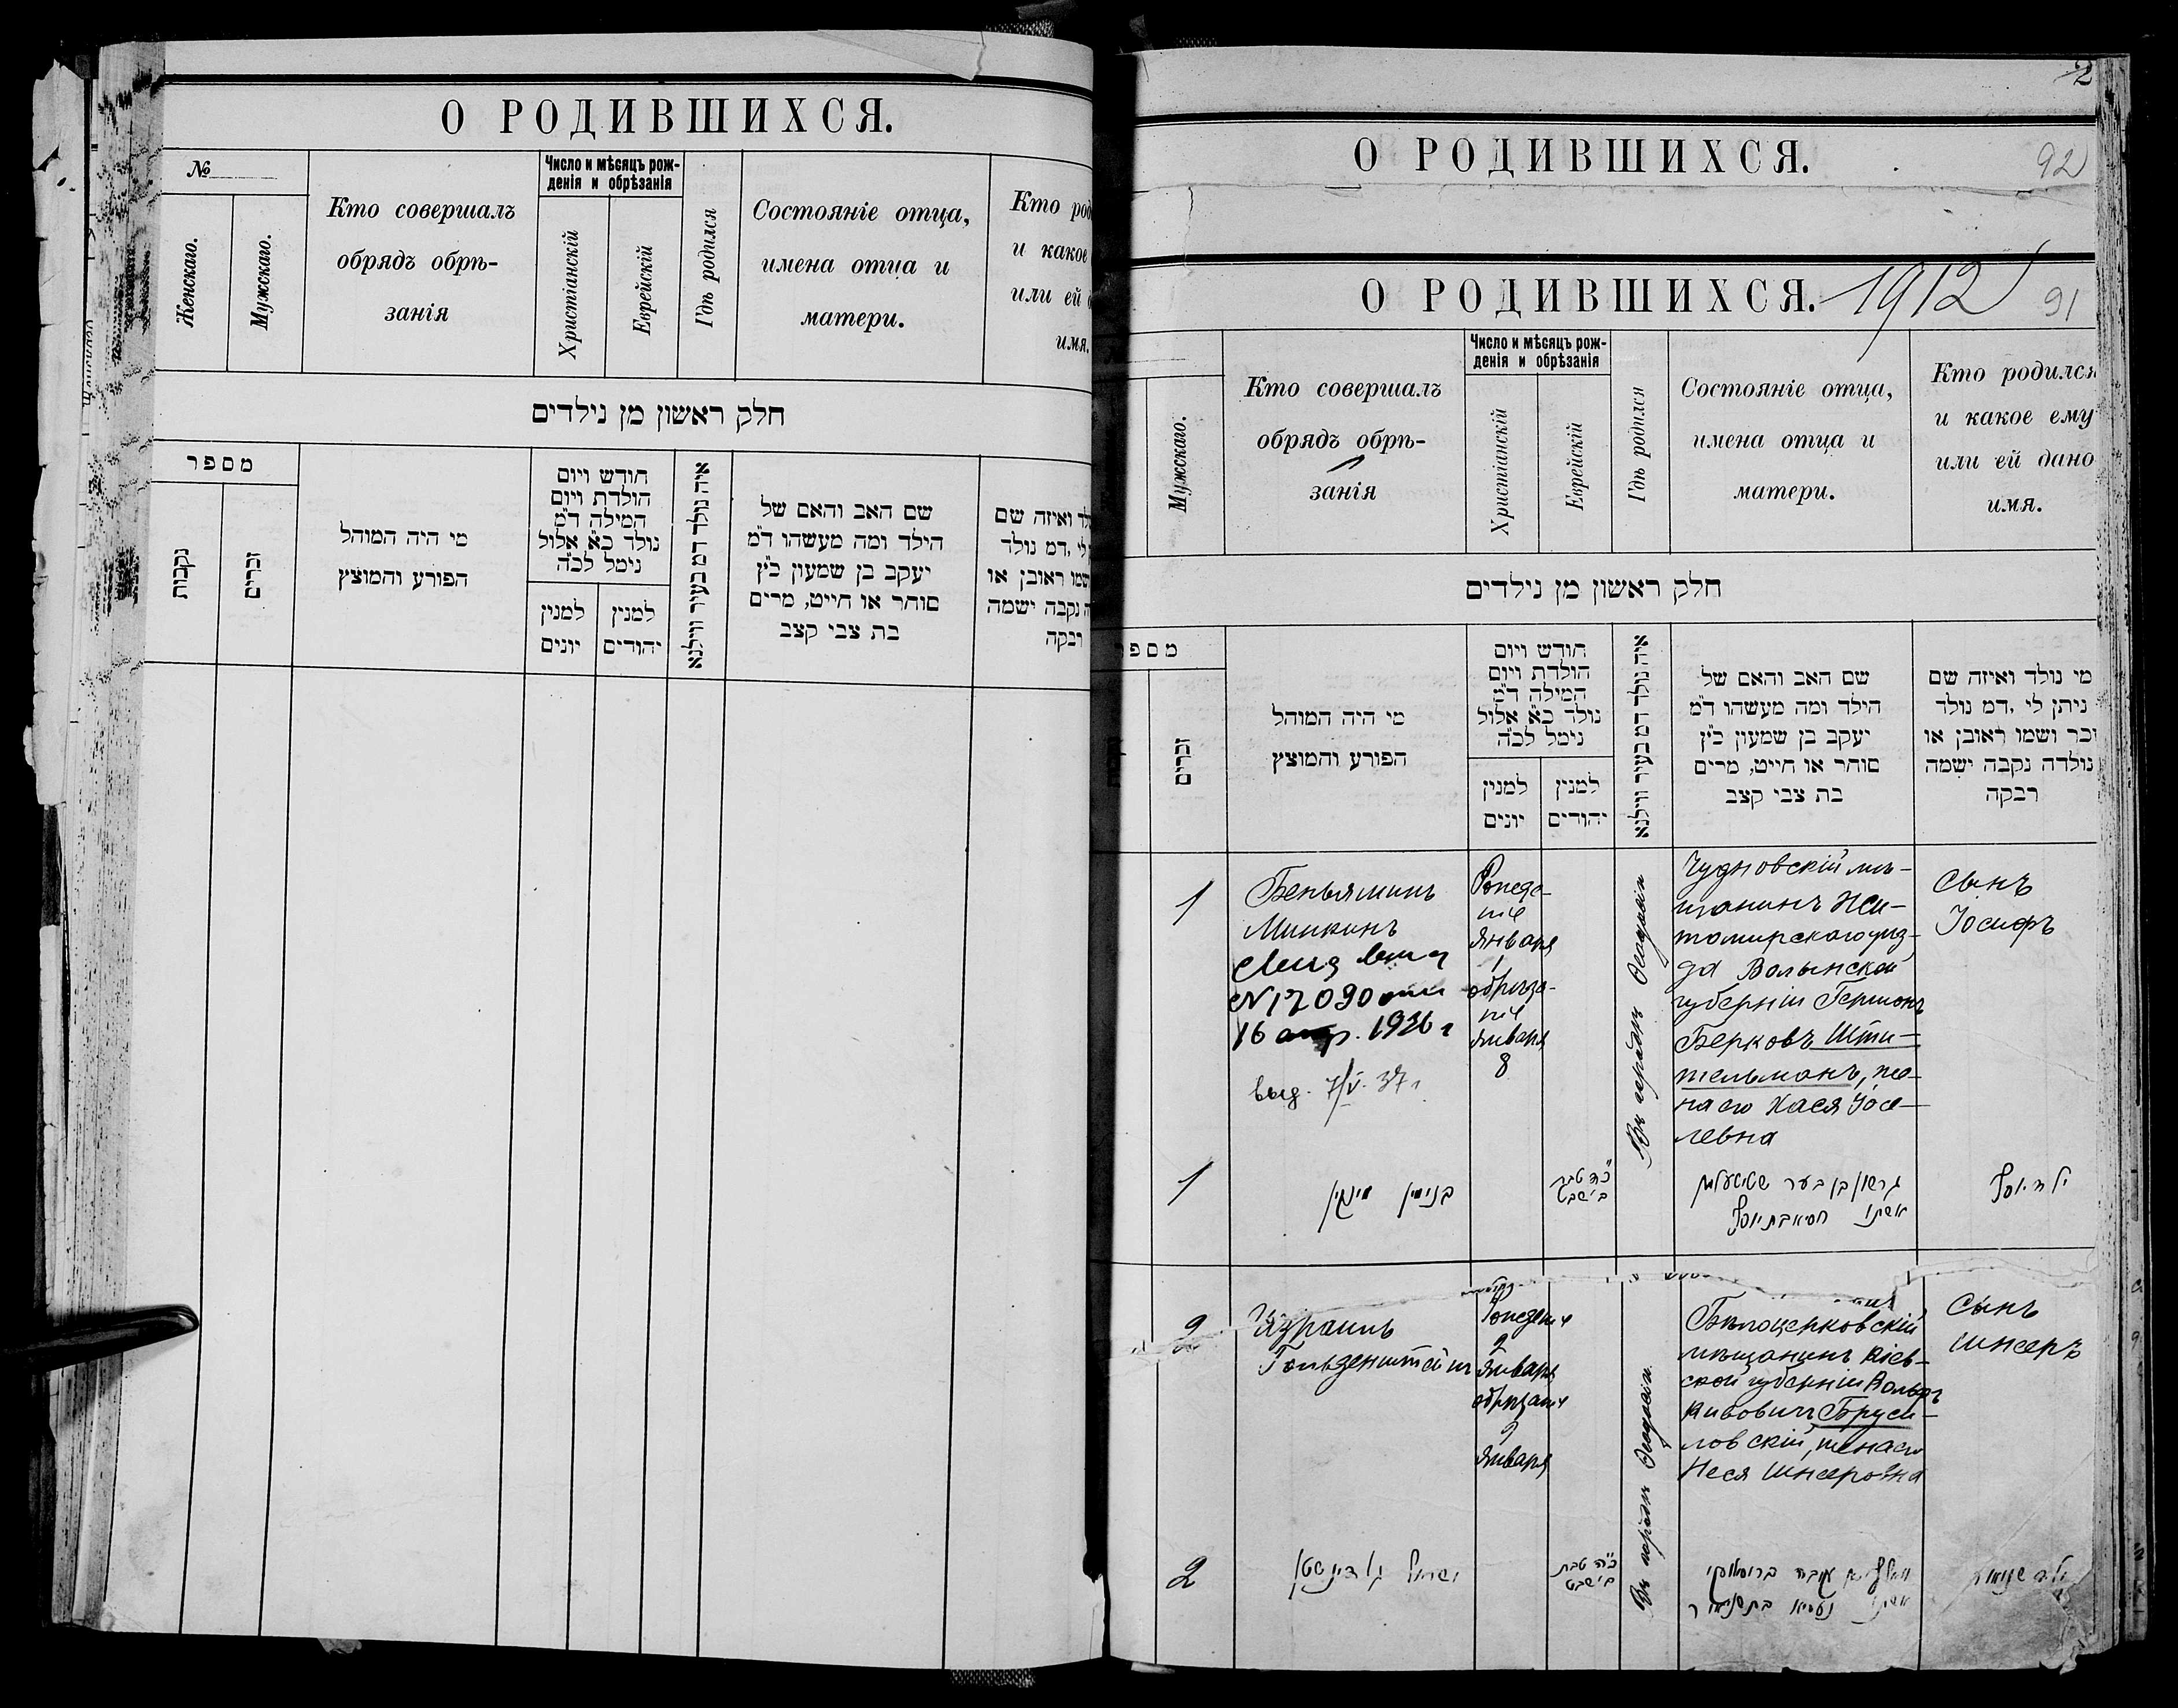 О РОДИВШИХСЯ.
№
Женскаго.
Мужскаго.
Кто совершалъ
обрядъ обрѣ-
занія
Число и мѣсяцъ рож-
денія и обрѣзанія
Христіанскій
Еврейскій
Гдѣ родился
Состояніе отца,
имена отца и
матери.
Кто род
и какое
или ей
имя.
חלק ראשון מן נילדים
מספר
נקבות
זכרים
מי היה המוהל
הפורע והמוצץ
חודש ויום
הולדת ויום
המילה ד״מ
נולד כ״א אלול
נימל לכ״ה
למנין
יונים
למנין
יהודים
איה נולד דמ בעיר ווילנא
שם האב והאם של
הילד ומה מעשהו ד״מ
יעקב בן שמעון כ״ץ
סוחר או חייט, מרים
בת צבי קצב
לד ואיזה שם
לי ,דמ נולד
שמו ראובן או
ה נקבה ישמה
רבקה
2
О РОДИВШИХСЯ.
92
О РОДИВШИХСЯ. 1912
91
Мужскаго.
Кто совершалъ
обрядъ обрѣ-
занія
Число и мѣсяцъ рож-
денія и обрѣзанія
Христіанскій
Еврейскій
Гдѣ родился
Состояніе отца,
имена отца и
матери.
Кто родился
и какое ему
или ей дано
имя.
חלק ראשון מן נילדים
מספר
זכרים
מי היה המוהל
הפורע והמוצץ
חודש ויום
הולדת ויום
המילה ד״מ
נולד כ״א אלול
נימל לכ״ה
למנין
יונים
למנין
יהודים
איה נולד דמ בעיר ווילנא
שם האב והאם של
הילד ומה מעשהו ד״מ
יעקב בן שמעון כ״ץ
סוחר או חייט, מרים
בת צבי קצב
מי נולד ואיזה שם
ניתן לי ,דמ נולד
זכר ושמו ראובן או
נולדה נקבה ישמה
רבקה
1
Беньяминъ
Минкинъ
№ 17090
16 апр. 1936 г
выд. 7/V. 37 г
Рожде-
ніе
января
1
обрѣза-
ніе
января
8
Въ городѣ Ѳеодосіи
Чудновскій мѣ-
щанинъ Жи-
томирскаго уѣз-
да Волынской
губерніи Гершонъ
Берковъ Шти-
тельманъ, же-
на его Хася Іосе-
левна
сынъ
Іосифъ
1
בנימין מינקין
כ״ה טבת
ב׳ שבט
גרשון בן בער שטיטעלמן
אשתו חסיא בת יוסף
ילד יוסף
2
Израиль
Гольденштейнъ
Рожденіе
2
января
обрѣзаніе
9
января
Въ городѣ Ѳеодосіи
Бѣлоцерковскій
мѣщанинъ Кіев-
ской губерніи Вольфъ
Кивовичъ Бруси-
ловскій, жена его
Неся Шнееровна
Сынъ
Шнееръ
2
ישראל גולדינשטין
ב׳ שבט